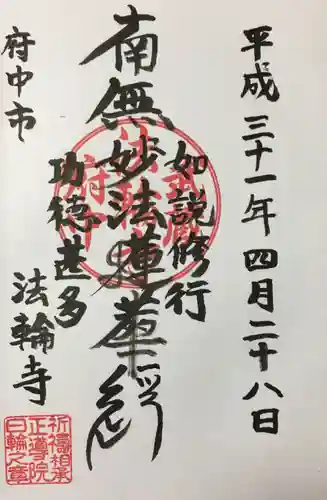 平成三十一年四月二十八日
如説修行
南無妙法蓮華経
功徳甚多
府中市
法輪寺
祈祷相承
正導院
日輪之章